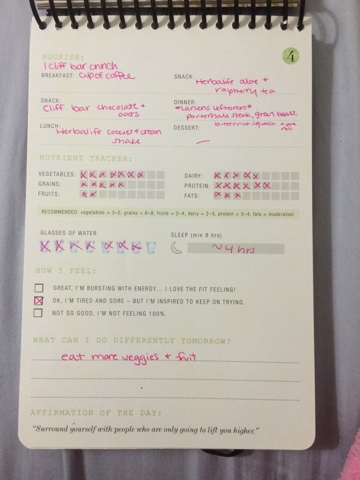 4
NOURISH:
1 Cliff bar crunch
BREAKFAST: cup of coffee
SNACK:
Herbalife aloe +
raspberry tea
SNACK:
Cliff bar chocolate +
oats
DINNER:
*Larsens leftovers*
porterhouse steak, green beans,
butternut squash + one
roll
LUNCH:
Herbalife cookies + cream
shake
DESSERT:
—
NUTRIENT TRACKER:
VEGETABLES:
DAIRY:
GRAINS:
PROTEIN:
FRUITS:
FATS:
RECOMMENDED: vegetables = 3–5, grains = 6–8, fruits = 2–4, dairy = 2–3, protein = 3–4, fats = moderation
GLASSES OF WATER
SLEEP (min 8 hrs)
~4 hrs
HOW I FEEL:
GREAT, I'M BURSTING WITH ENERGY... I LOVE THE FIT FEELING!
OK, I'M TIRED AND SORE – BUT I'M INSPIRED TO KEEP ON TRYING.
NOT SO GOOD, I'M NOT FEELING 100%.
WHAT CAN I DO DIFFERENTLY TOMORROW?
eat more veggies + fruit
AFFIRMATION OF THE DAY:
"Surround yourself with people who are only going to lift you higher."